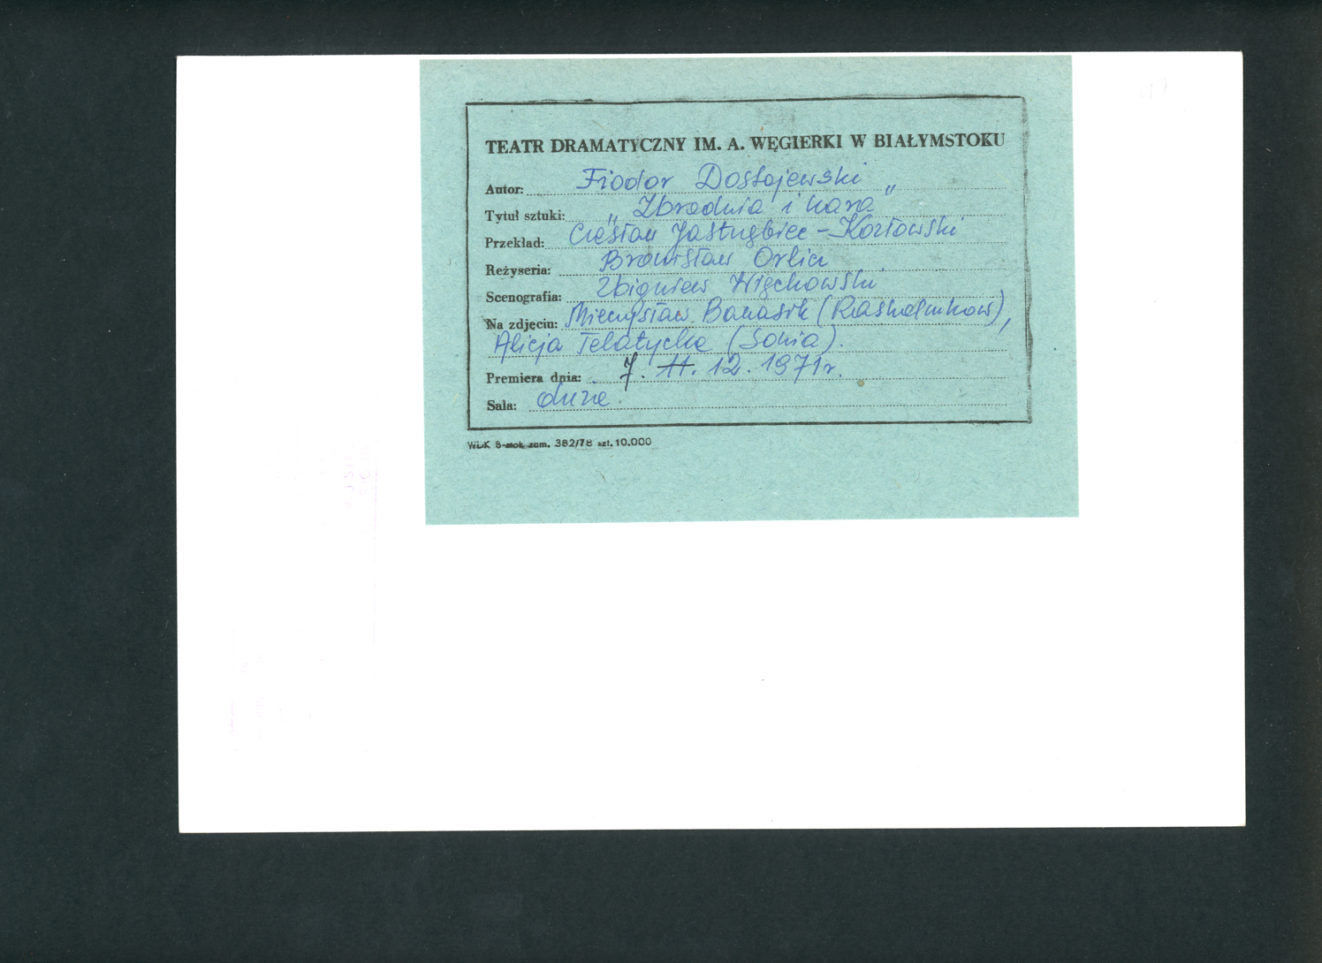 TEATR DRAMATYCZNY IM. A. WĘGIERKI W BIAŁYMSTOKU
Autor: Fiodor Dostojewski
Tytuł sztuki: „Zbrodnia i kara”
Przekład: Czesław Jastrzębiec-Kozłowski
Reżyseria: Bronisław Orlicz
Scenografia: Zbigniew Więckowski
Na zdjęciu: Mieczysław Banasik (Raskolnikow),
Alicja Telatycka (Sonia).
Premiera dnia: 7. 11. 12. 1971r.
Sala: duże.
WDK B-stok zam. 382/78 szt. 10.000